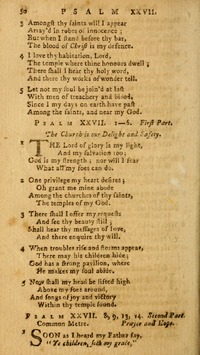 50 PSALM XXVII.
3 Amongst thy saints will I appear
Array'd in robes of innocence ;
But when I stand before thy bar,
The blood of Christ is my defence.
4 I love thy habitation, Lord,
The temple where thine honours dwell ;
There shall I hear thy holy word,
And there thy works of wonder tell.
5 Let not my soul be join'd at last
With men of treachery and blood,
Since I my days on earth have past
Among the saints, and near my God.
PSALM XXVII. 1—6. First Part.
The Church is our Delight and Safety.
1 THE Lord of glory is my light,
And my salvation too;
God is my strength ; nor will I fear
What all my foes can do.
2 One privilege my heart desires ;
Oh grant me mine abode
Among the churches of thy saints,
The temples of my God.
3 There shall I offer my requests
And see thy beauty still ;
Shall hear thy messages of love,
And there enquire thy will.
4 When troubles rise and storms appear,
There may his children hide;
God has a strong pavilion, where
He makes my soul abide.
5 Now shall my head be lifted high
Above my foes around,
And songs of joy and victory
Within thy temple sound.
PSALM XXVII. 8, 9, 13, 14. Second Part.
Common Metre. Prayer and Hope.
1 SOON as I heard my Father say,
"Ye children, seek my grace,"